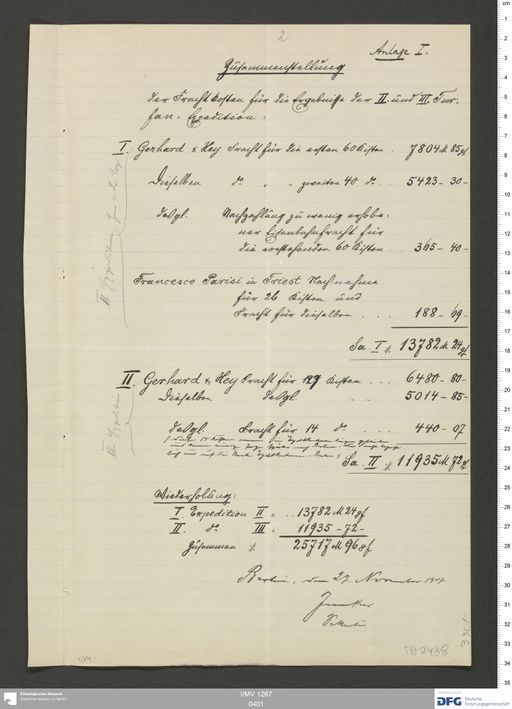 2
Anlage I.
Zusammenstellung
der Frachtkosten für die Ergebnisse der II. und III. Tur-
fan-Expedition:
I. Gerhard & Hey Fracht für die ersten 60 Kisten . 7804 M 85 pf
Dieselben do. " " zweiten 40 do. . . 5423 - 30 -
desgl. Nachzahlung zu wenig erhobe-
ner Eisenbahnfracht für
die vorstehenden 60 Kisten . 365 - 40 -
Francesco Parisi in Triest Nachnahme
für 26 Kisten und
Fracht für dieselben . . . . 188 - 69 -
Sa. I 13782 M 24 pf
II. Gerhard & Hey Fracht für 127 Kisten . . . 6480 - 80 -
Dieselben desgl. . . 5014 - 85 -
desgl. Fracht für 14 do. . . . 440 - 07
Sa. II 11935 M 72 pf
Wiederholung:
I. Expedition II . . 13782 M 24 pf
II. do. III 11935 - 72 -
Zusammen 25717 M 96 pf
Berlin, den 27. November 1907
II Expedition
III Expedition
TA 2438
I/MV 1267
0401
Ethnologisches Museum
Staatliche Museen zu Berlin
DFG Deutsche
Forschungsgemeinschaft